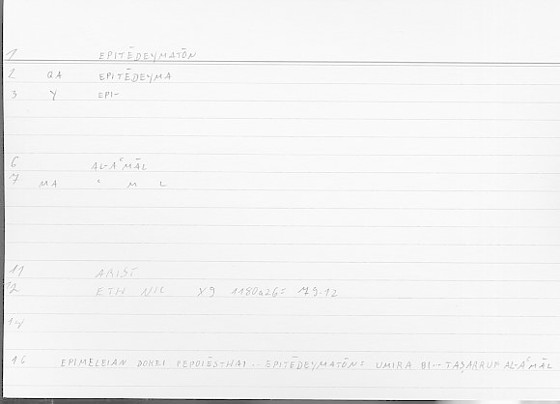 1 EPITĒDEYMATŌN
2 QA EPITĒDEYMA
3 Y EPI-
6 AL-AʿMĀL
7 MA ʿ M L
11 ARIST
12 ETH NIC X9 1180a26=
16 EPIMELEIAN DOKEI PEPOIĒSTHAI .. EPITĒDEYMATŌN: UMIRA BI-- TAṢARRUF AL-AʿMĀL